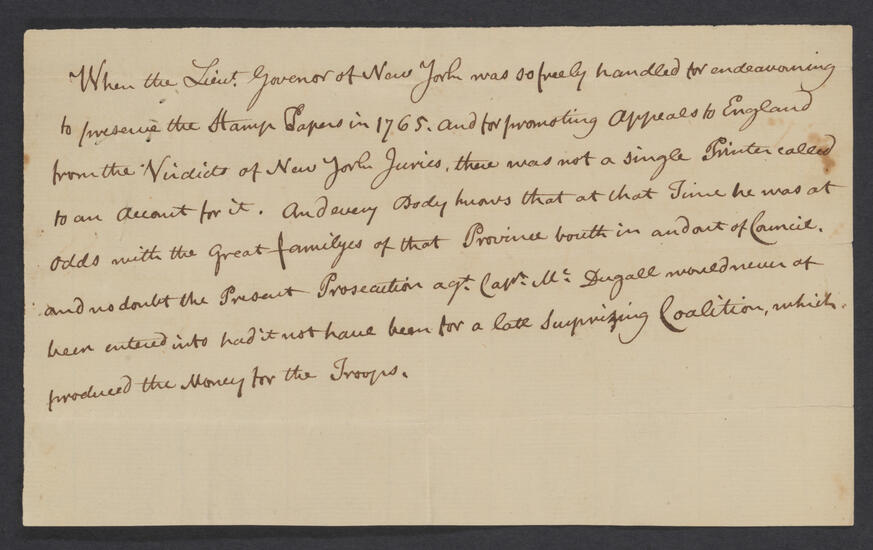 When the Lieut. Govenor of New York was so freely handled for endeavouring
to preserve the Stamp Papers in 1765. and for promoting Appeals to England
from the Virdicts of New York Juries, there was not a single Printer called
to an Account for it. And every Body knows that at that Time he was at
Odds with the Great familyes of that Province bouth in and out of Council.
and no doubt the Present Prosecution agt. Capn. Mc. Dugall would never of
been entered into had it not have been for a late Surprizing Coalition, which
produced the Money for the Troops.